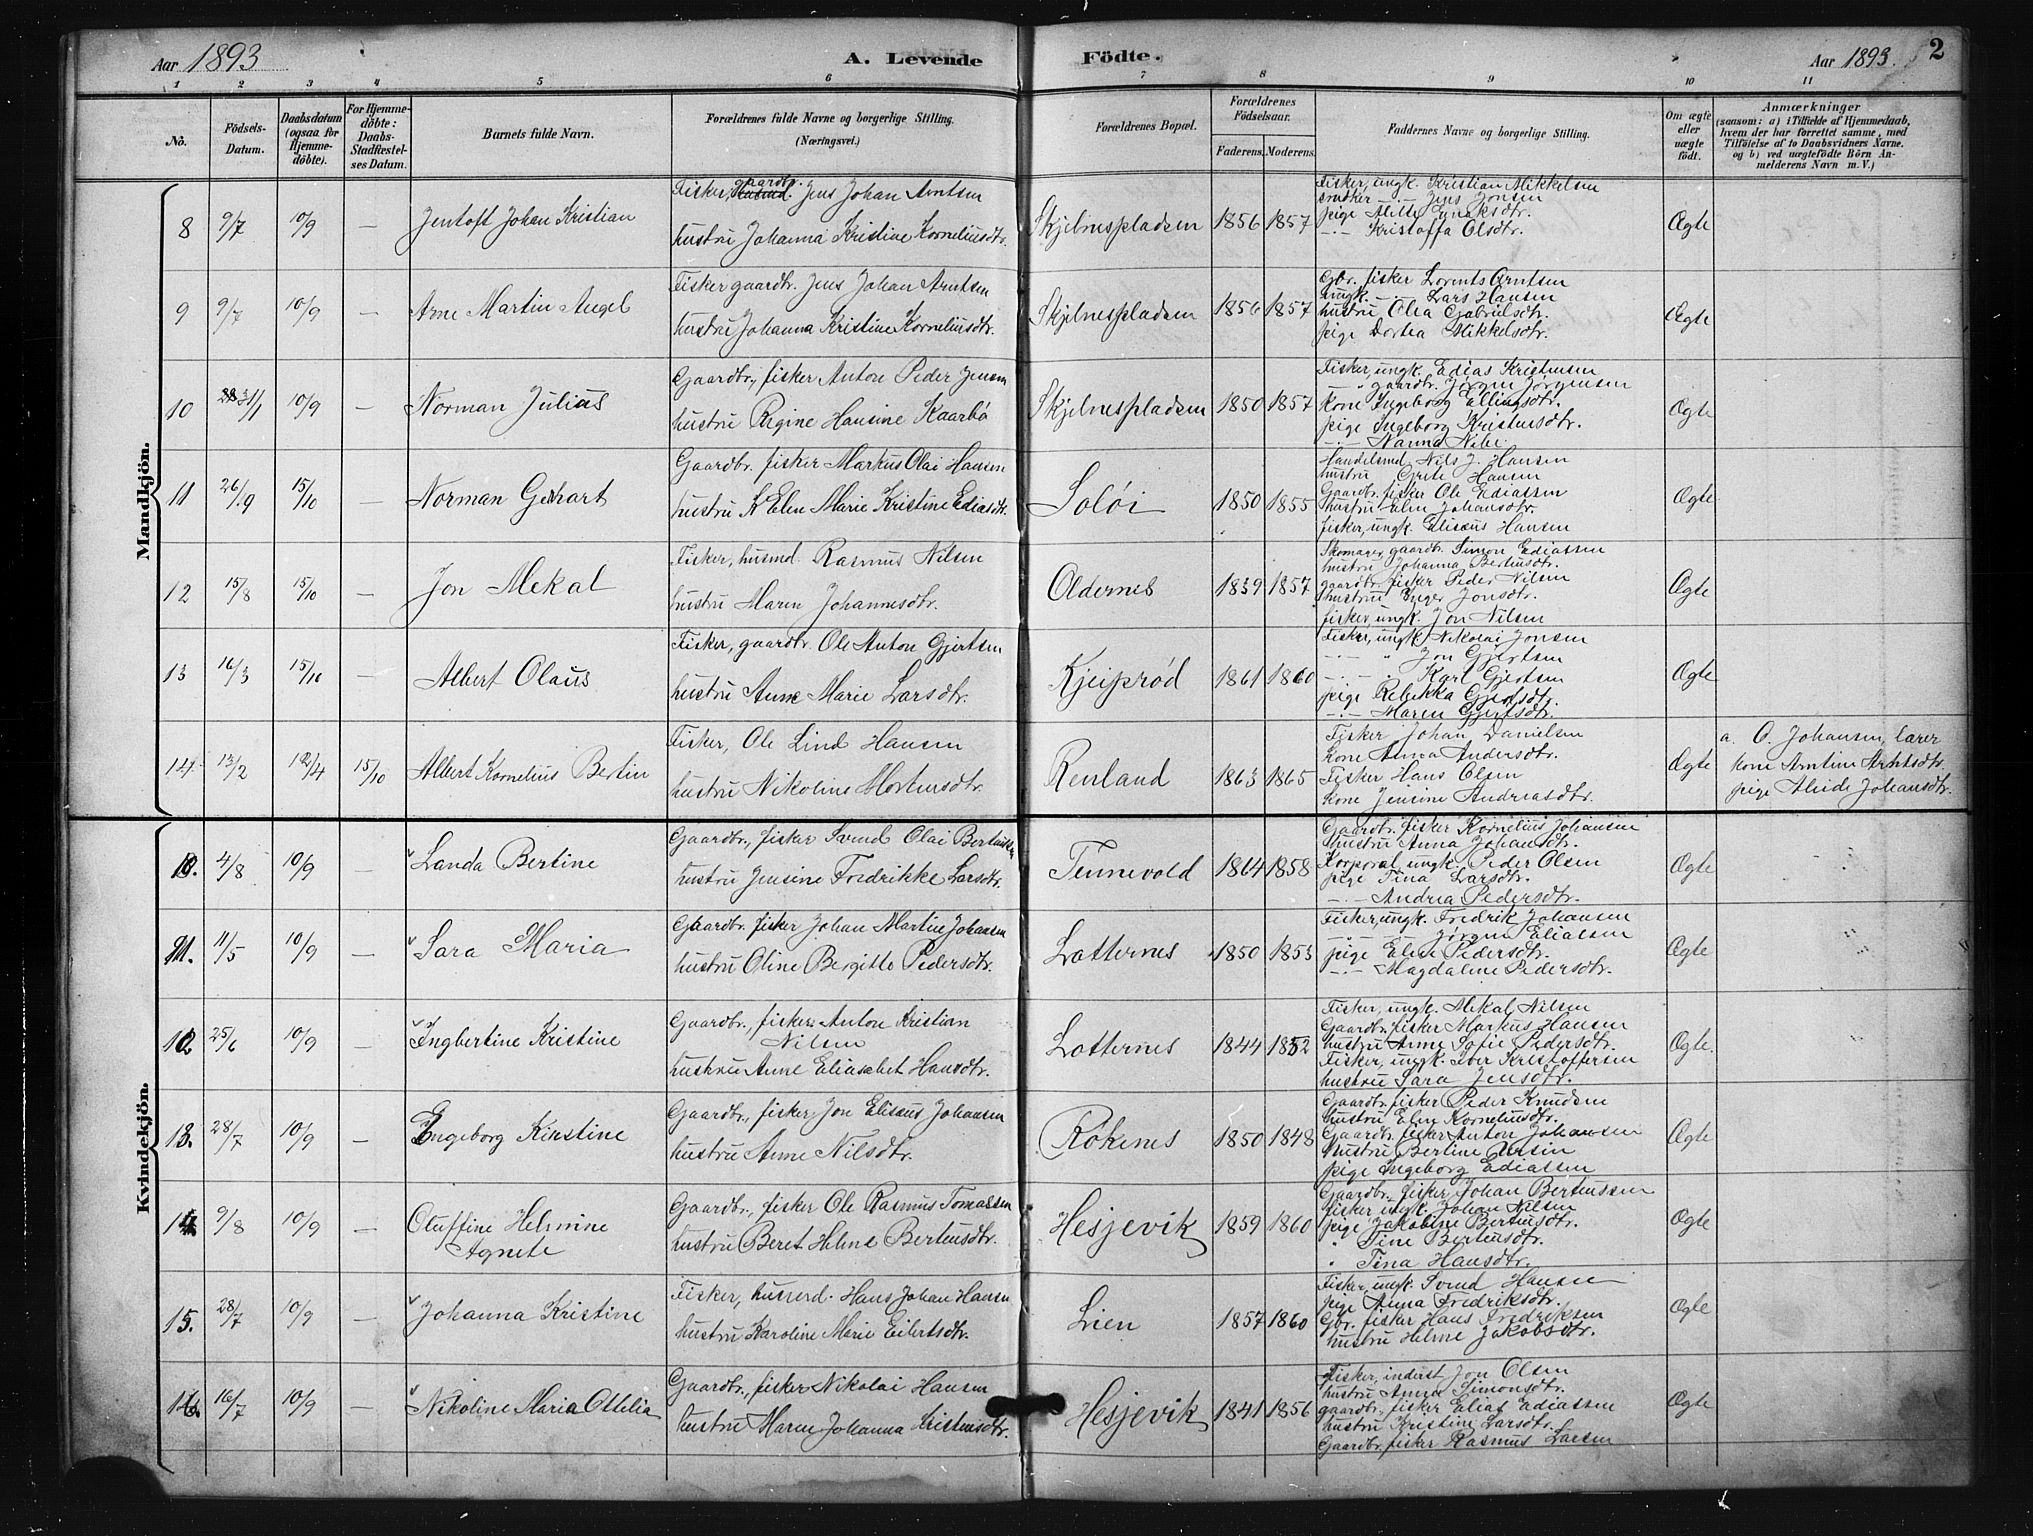 Aar 1893 A. Levende Födte. Aar 1893. 2
1 2 3 4 5 6 7 8 9 10 11
No. Födsels-Datum. Daabsdatum (ogsaa for Hjemmedöbte). For Hjemmedöbte: Daabs-Stadfæstelses Datum. Barnets fulde Navn. Forældrenes fulde Navne og borgerlige Stilling. (Næringsvei.) Forældrenes Bopæl. Forældrenes Födselsaar. Faderens. Moderens. Faddernes Navne og borgerlige Stilling. Om ægte eller uægte födt. Anmærkninger (saasom: a) i Tilfælde af Hjemmedaab, hvem der har forrettet samme, med Tilföielse af to Daabsvidners Navne. og b) ved uægtefödte Börn Anmelderens Navn m. V.)
Mandkjön.
8 9/7 10/9 — Jentoft Johan Kristian
Fisker, gaardbr. Jens Johan Arntsen
hustru Johanna Kristine Korneliusdtr.
Skjelnespladsen 1856 1857
Fisker, ungk. Kristian Mikkelsen
Jens Jensen
pige Mette
—"— Kristoffa Olsdtr.
Ægte
9 9/7 10/9 — Arne Martin Angel
Fisker gaardbr. Jens Johan Arntsen
hustru Johanna Kristine Korneliusdtr.
Skjelnespladsen 1856 1857
Gbr. fisker Lorents Arntsen
ungk. —"— Lars Hansen
hustru Olea Gabrielsdtr.
pige Dortea Mikkelsdtr.
Ægte
10 31/1 10/9 — Norman Julius
Gaardbr., fisker Anton Peder Jensen
hustru Regine Hansine Kaarbö
Skjelnespladsen 1850 1857
Fisker, ungk. Edias Kristensen
—"— gaardbr. Jörgen Jörgensen
kone Ingeborg Ellingsdtr.
pige Ingeborg Kristensdtr.
—"— Nanna
Ægte
11 26/9 15/10 — Norman Gerhart
Gaardbr. fisker Markus Olai Hansen
hustru Elen Marie Kristine Ediasdtr.
Soløi 1850 1855
Handelsmd. Nils J. Hansen
hustru Grete Hansen
Gaardbr. fisker Ole Ediassen
hustru Elen Johansdtr.
fisker, ungk. Elisæus Hansen
Ægte
12 15/8 15/10 — Jon Mekal
Fisker, husmd. Rasmus Nilsen
hustru Maren Johannesdtr.
Oldernes 1839 1857
Skomager, gaardbr. Simon Ediassen
hustru Johanna Berteusdtr.
gaardbr. fisker Peder Nilsen
hustru Inger Jonsdtr.
fisker, ungk. Jon Nilsen
Ægte
13 16/3 15/10 — Albert Olaus
Fisker, gaardbr. Ole Anton Gjertsen
hustru Anne Marie Larsdtr.
Kjeiprød 1861 1860
Fisker, ungk. Nikolai Jonsen
—"— " Jon Gjertsen
—"— Karl Gjertsen
pige Rebekka Gjertsdtr.
—"— Maren Gjertsdtr.
Ægte
14. 13/2 12/4 15/10 Albert Kornelius Bertin
Fisker, Ole Lind Hansen
hustru Nikoline Mortensdtr.
Renland 1863 1865
Fisker Johan Danielsen
kone Anna Andersdtr.
Fisker Hans Olsen
kone Jensine Andreasdtr.
Ægte
a. O. Johansen, lærer
kone Arntine Arntsdtr.
pige Alide Johansdtr.
Kvindekjön.
10. 4/8 10/9 — Landa Bertine
Gaardbr., fisker Svend Olai Berteussen
hustru Jensine Fredrikke Larsdtr.
Tennevold 1864 1858
Gaardbr. fisker Kornelius Johansen
hustru Anna Johansdtr.
Korporal, ungk. Peder Olsen
pige Tina Larsdtr.
—"— Andrea Pedersdtr.
Ægte
11. 11/5 10/9 — Sara Maria
Gaardbr. fisker Johan Martin Johansen
hustru Oline Bergitte Pedersdtr.
Lotternes 1850 1853
Fisker, ungk. Fredrik Johansen
—"— Jörgen Eliassen
pige Elen Pedersdtr.
—"— Magdalene Pedersdtr.
Ægte
12 25/6 10/9 — Ingbertine Kristine
Gaardbr., fisker Anton Kristian
Nilsen
hustru Anne Eliasabet Hansdtr.
Lotternes 1844 1852
Fisker, ungk. Mekal Nilsen
Gaardbr. fisker Markus Hansen
hustru Anne Sofie Pedersdtr.
Fisker, ungk. Iver Kristoffersen
hustru Sara Jensdtr.
Ægte.
13. 28/7 10/9 — Engeborg Kirstine
Gaardbr., fisker Jon Elisæus Johansen
hustru Anne Nilsdtr.
Rökenes 1850 1848
Gaardbr. fisker Peder Knudsen
hustru Elen Korneliusdtr.
Gaardbr. fisker Anton Johansen
hustru Berline
pige Ingeborg Ediassen
Ægte
14. 9/8 10/9 — Oluffine Helmine
Agnete
Gaardbr., fisker Ole Rasmus Tomassen
hustru Beret Helene Berteusdtr.
Hesjevik 1859 1860
Gaardbr., fisker, Johan Berteussen
fisker ungk. Johan Nilsen
pige Jakobine Berteusdtr.
" Tine Berteusdtr.
" Tina Hansdtr.
Ægte
15. 28/7 10/9 — Johanna Kristine
Fisker, husmd. Hans Johan Hansen
hustru Karoline Marie Eilertsdtr.
Lien 1857 1860
Fisker, ungk. Svend Hansen
pige Anna Fredriksdtr.
Gbr. fisker Hans Fredriksen
hustru Helene Jakobsdtr.
Ægte
16. 16/7 10/9 — Nikoline Maria Ottelia
Gaardbr., fisker Nikolai Hansen
hustru Maren Johanna Kristensdtr.
Hesjevik 1841 1856
Fisker, inderst Jon Olsen
hustru Anna Simonsdtr.
gaardbr., fisker Elias Ediassen
hustru Kristine Larsdtr.
Gaardbr., fisker Rasmus Larsen
Ægte